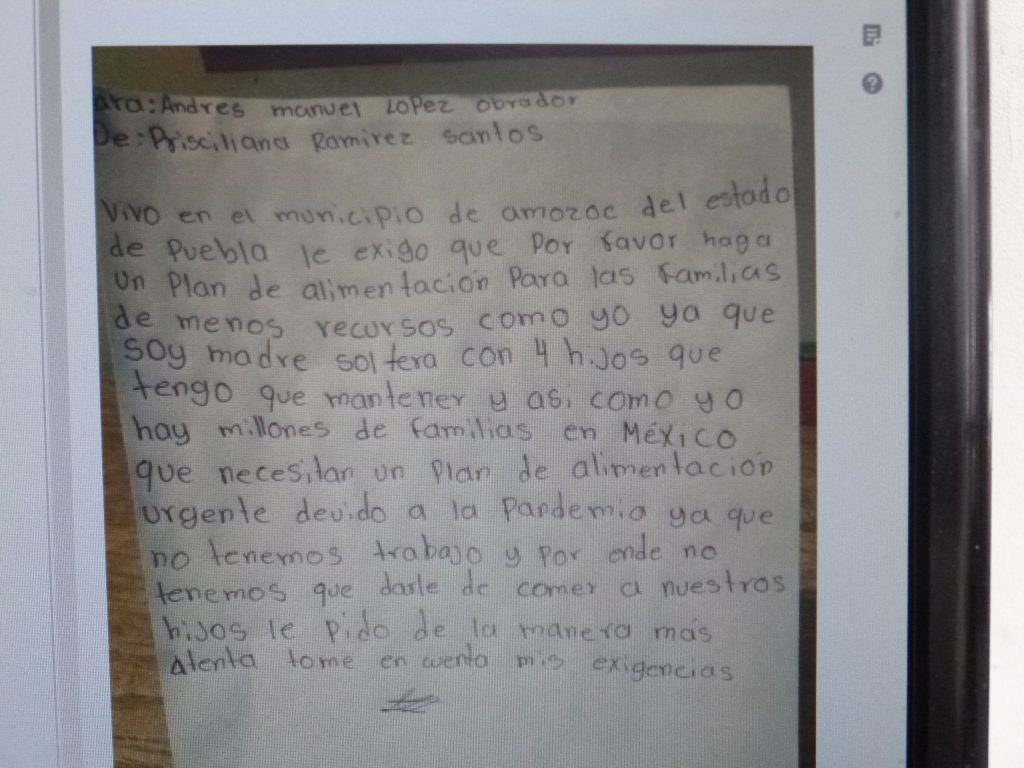 ara: Andres manuel Lopez obrador
De: Prisciliana Ramirez santos
Vivo en el municipio de amozoc del estado
de Puebla le exigo que Por favor haga
un Plan de alimentación Para las familias
de menos recursos como yo ya que
soy madre soltera con 4 hijos que
tengo que mantener y asi como yo
hay millones de familias en México
que necesitan un Plan de alimentación
urgente devido a la Pandemia ya que
no tenemos trabajo y por ende no
tenemos que darle de comer a nuestros
hijos le Pido de la manera más
atenta tome en cuenta mis exigencias